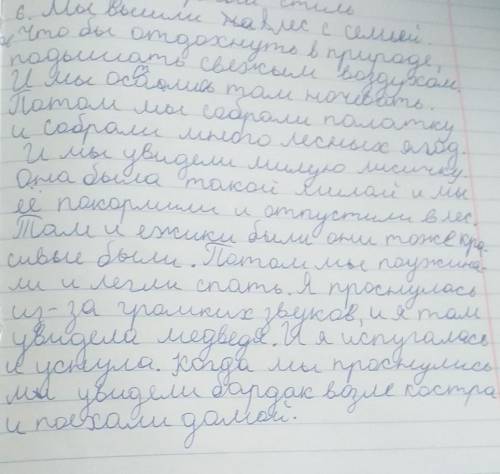 стиль
6. Мы вышли на лес с семьёй.
Что бы отдохнуть в природе,
подышать свежым воздухом
И мы остались там ночевать.
Патом мы собрали палатку
и собрали много лесных ягод.
И мы увидели милую лисичку.
она была такой милой и мы
её покармили и отпустили в лес.
Там и ежики были они тоже кра-
сивые были. Потом мы поужина-
ли и легли спать. Я проснулась
из-за громких звуков, и я там
увидела медведя. И я испугалась
и уснула. Когда мы проснулись
мы увидели бардак возле костра
и поехали домой.